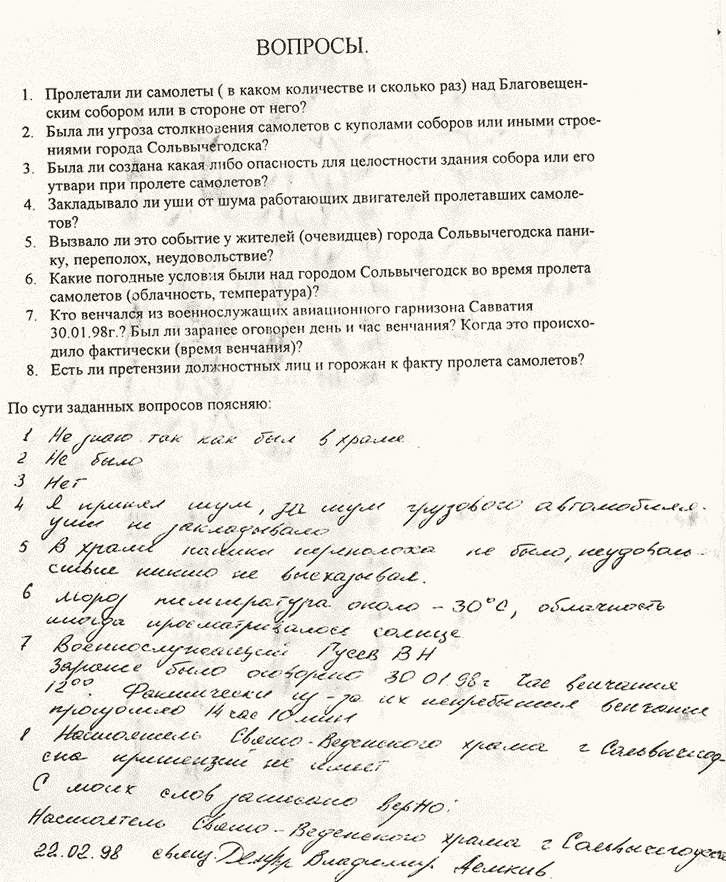 ВОПРОСЫ.
1. Пролетали ли самолеты ( в каком количестве и сколько раз) над Благовещен-
ским собором или в стороне от него?
2. Была ли угроза столкновения самолетов с куполами соборов или иными строе-
ниями города Сольвычегодска?
3. Была ли создана какая либо опасность для целостности здания собора или его
утвари при пролете самолетов?
4. Закладывало ли уши от шума работающих двигателей пролетавших самоле-
тов?
5. Вызвало ли это событие у жителей (очевидцев) города Сольвычегодска пани-
ку, переполох, неудовольствие?
6. Какие погодные условия были над городом Сольвычегодск во время пролета
самолетов (облачность, температура)?
7. Кто венчался из военнослужащих авиационного гарнизона Савватия
30.01.98г.? Был ли заранее оговорен день и час венчания? Когда это происхо-
дило фактически (время венчания)?
8. Есть ли претензии должностных лиц и горожан к факту пролета самолетов?
По сути заданных вопросов поясняю:
1 Не знаю так как был в храме
2 Не было
3 Нет
4 Я принял шум, за шум грузового автомобиля.
уши не закладывало
5 В храме паники переполоха не было, неудоволь-
ствие никто не высказывал.
6 мороз температура около -30°С, облачность
иногда просматривалось солнце
7 Военнослужащий Гусев ВН
Заранее было оговорено 30 01 98г час венчания
12⁰⁰. Фактически из-за их неприбытия венчание
произошло 14 час 10 мин
8 Настоятель Свято-Веденского храма г Сольвычегод-
ска претензии не имеет
С моих слов записано верно:
Настоятель Свято-Веденского храма г Сольвычегодска
22.02.98 свящ. Владимир Демкив